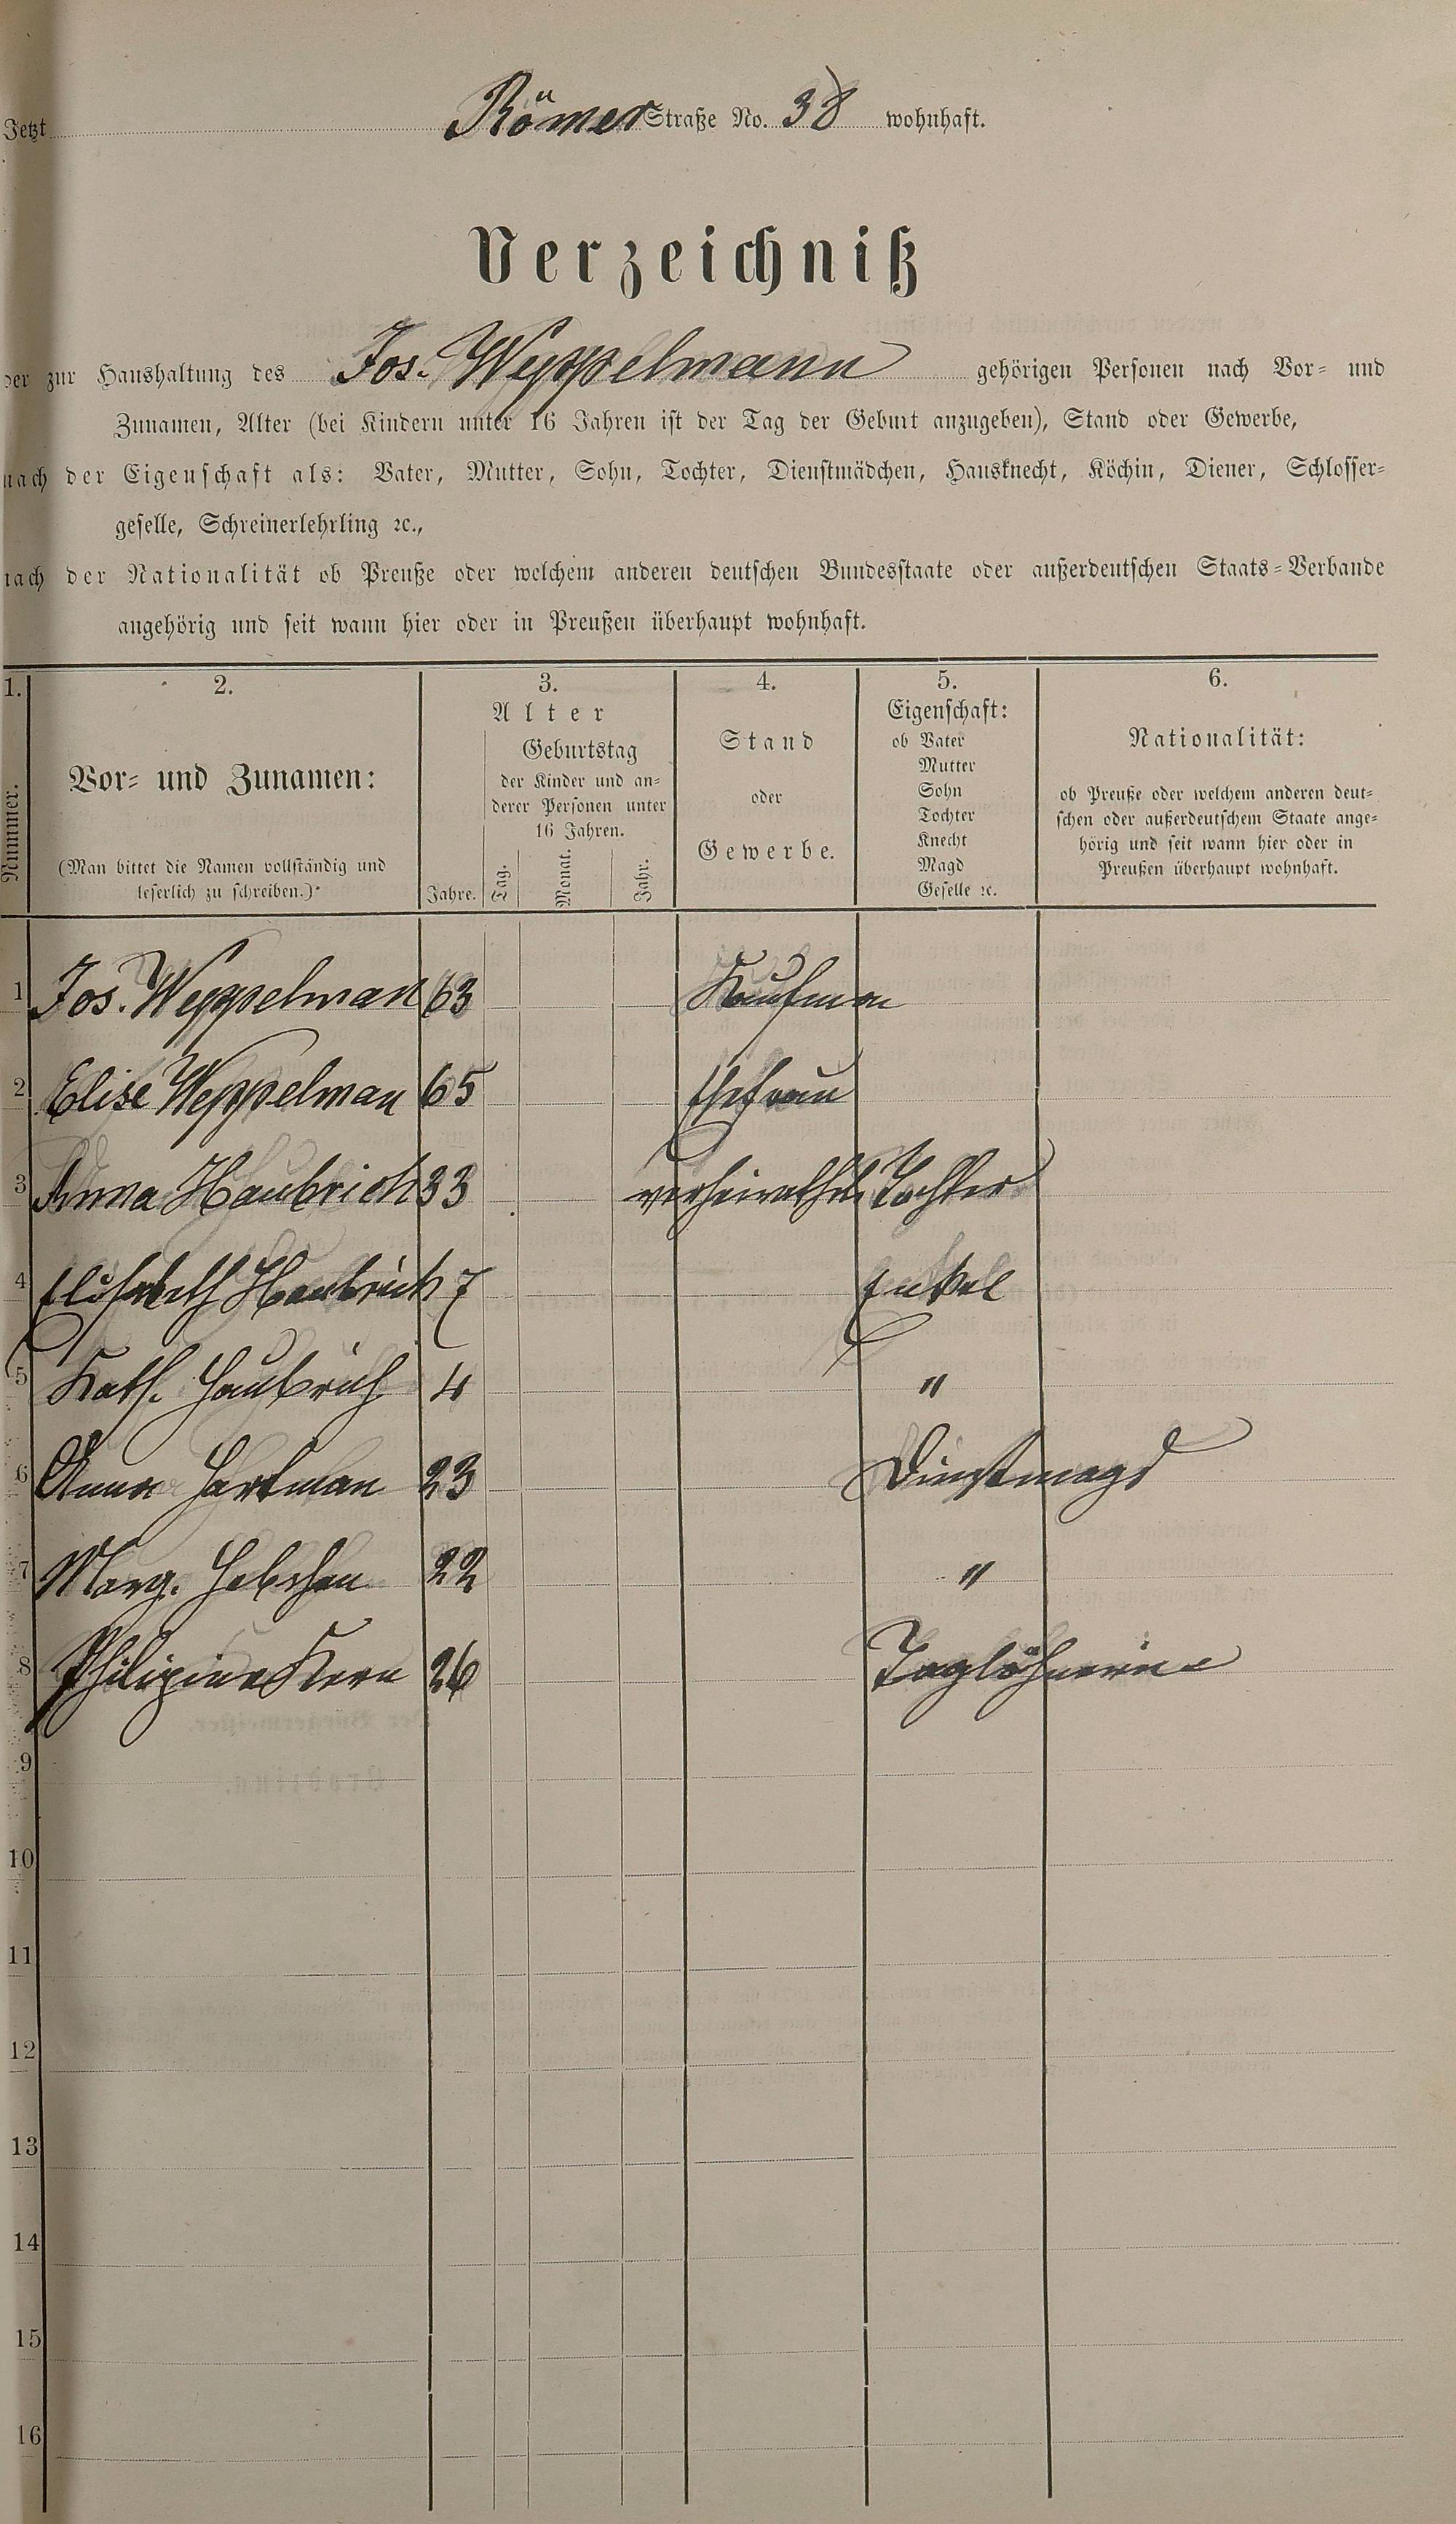 Jetzt Römer Straße No. 38 wohnhaft.
Verzeichniß
der zur Haushaltung des Jos. Weppelmann gehörigen Personen nach Vor- und
Zunamen, Alter (bei Kindern unter 16 Jahren ist der Tag der Geburt anzugeben), Stand oder Gewerbe,
nach der Eigenschaft als: Vater, Mutter, Sohn, Tochter, Dienstmädchen, Hausknecht, Köchin, Diener, Schlosser-
geselle, Schreinerlehrling ꝛc.,
nach der Nationalität ob Preuße oder welchem anderen deutschen Bundesstaate oder außerdeutschen Staats-Verbande
angehörig und seit wann hier oder in Preußen überhaupt wohnhaft.
1. 2. 3. 4. 5. 6.
Nummer.
Vor- und Zunamen:
(Man bittet die Namen vollständig und
leserlich zu schreiben.)
Alter
Jahre.
Geburtstag
der Kinder und an-
derer Personen unter
16 Jahren.
Tag. Monat. Jahr.
Stand
oder
Gewerbe.
Eigenschaft:
ob Vater
Mutter
Sohn
Tochter
Knecht
Magd
Geselle ꝛc.
Nationalität:
ob Preuße oder welchem anderen deut-
schen oder außerdeutschem Staate ange-
hörig und seit wann hier oder in
Preußen überhaupt wohnhaft.
1 Jos. Weppelman 63 Kaufman
2 Elise Weppelman 65 Ehefrau
3 Anna Haubrich 33 verheirathete Tochter
4 Elisabeth Haubrich 7 Enkel
5 Kath. Haubrich 4 "
6 Anna Hartman 23 Dienstmagd
7 Marg. 22 "
8 Philipina Kern 26 Taglöhnerin
9
10
11
12
13
14
15
16